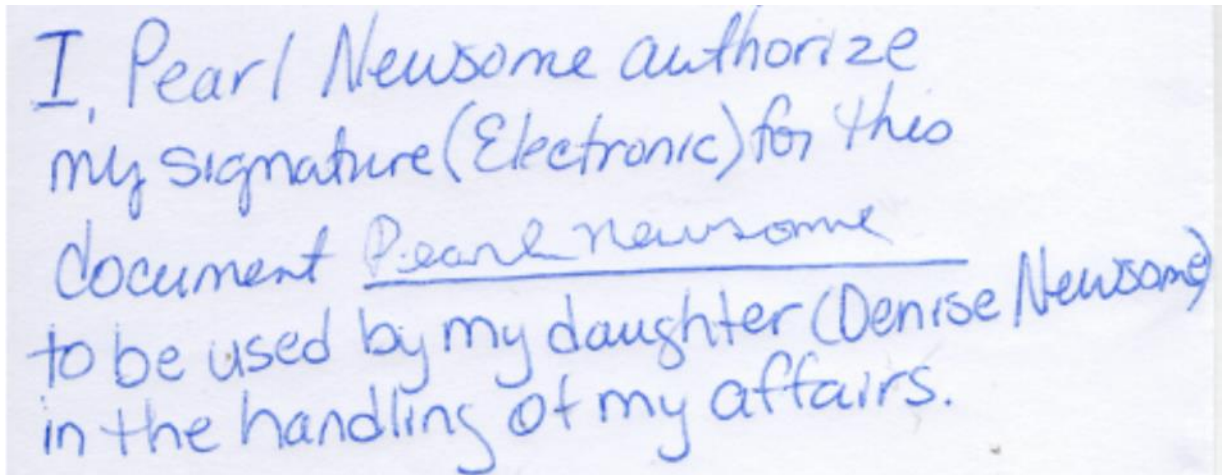 I, Pearl Newsome authorize
my signature (Electronic) for this
document Pearl Newsome
to be used by my daughter (Denise Newsome)
in the handling of my affairs.